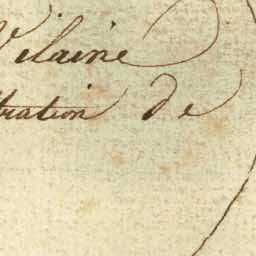 Vilaine
tration de